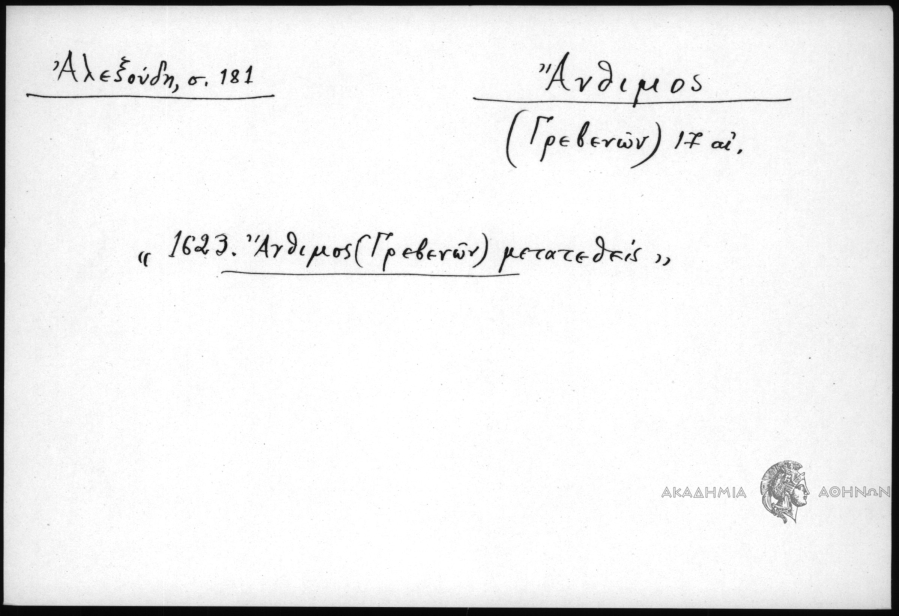 Ἀλεξούδη, σ. 181
Ἄνθιμος
(Γρεβενῶν) 17 αἰ.
« 1623. Ἄνθιμος (Γρεβενῶν) μετατεθείς »
ΑΚΑΔΗΜΙΑ ΑΘΗΝΩΝ